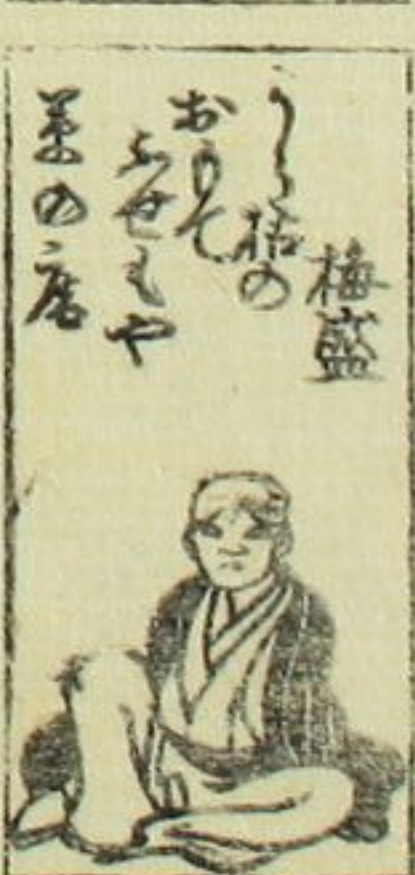 梅盛
うら枯の
おもて
みせもや
の店